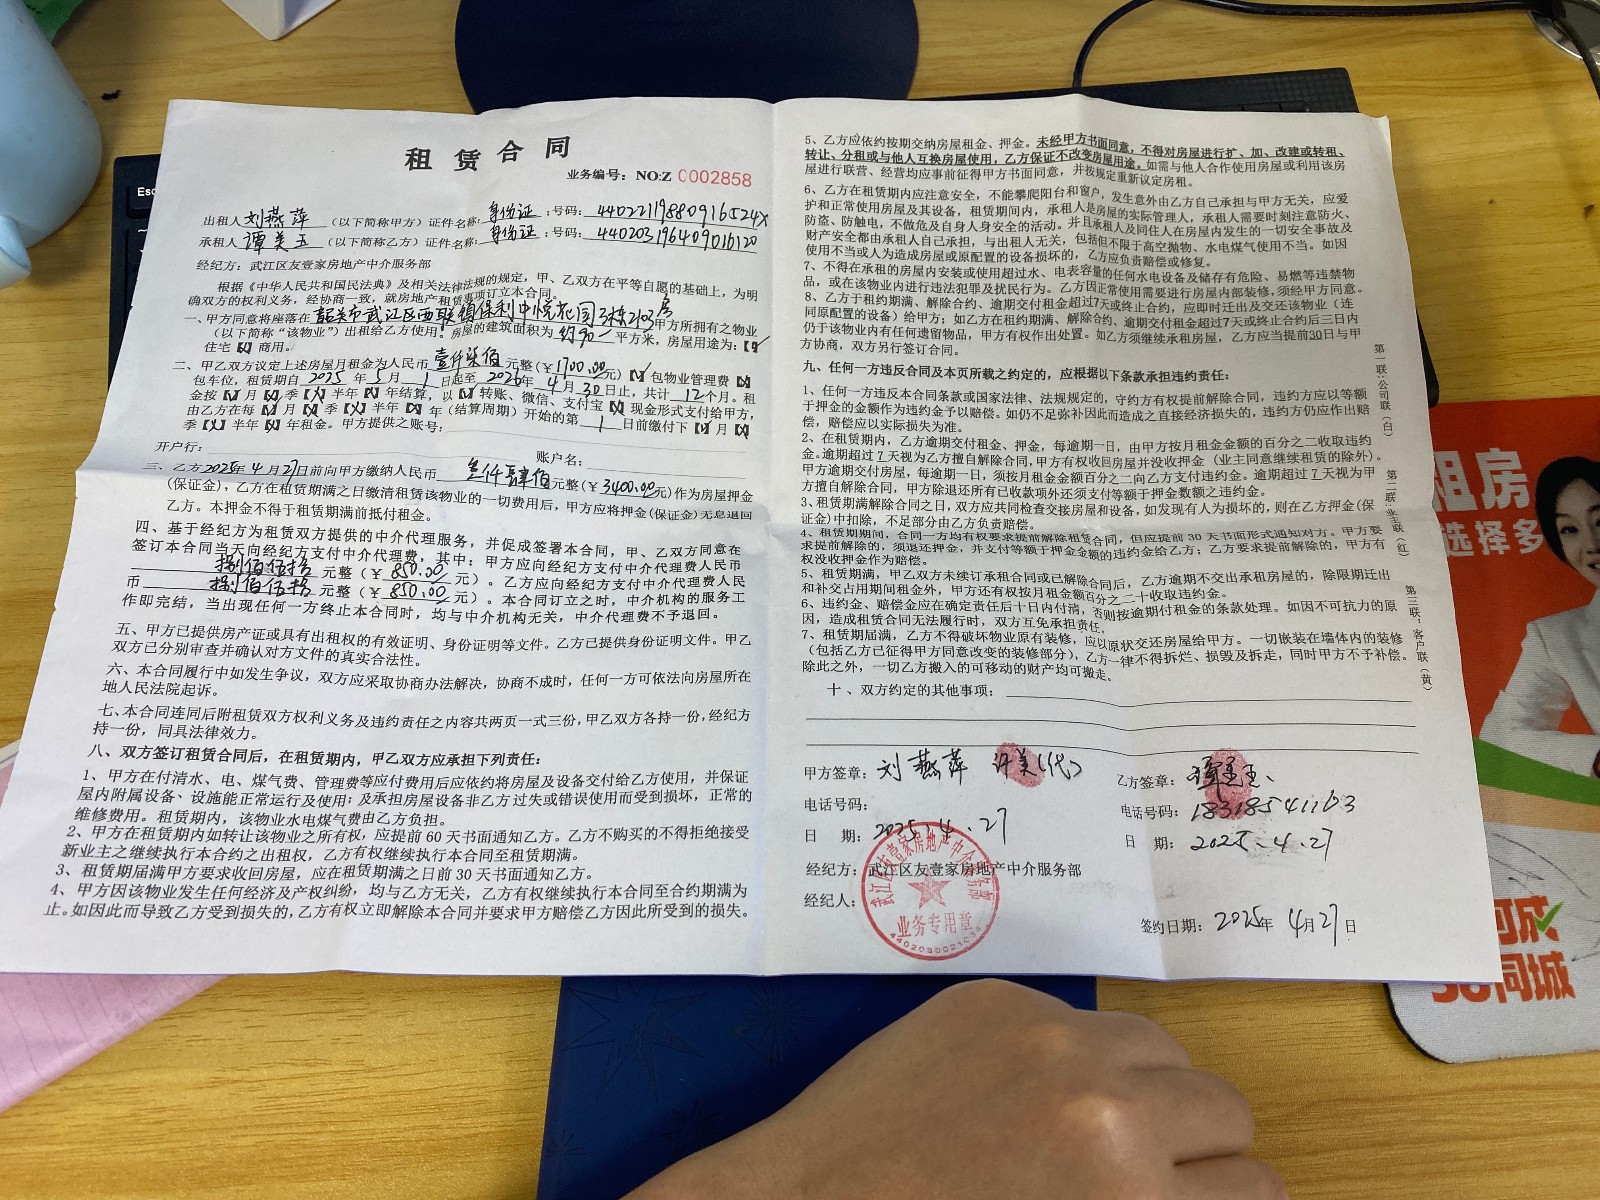 租赁合同
业务编号：NO:Z 0002858
出租人刘燕萍（以下简称甲方）证件名称：身份证；号码：44022119880916524X
承租人谭美玉（以下简称乙方）证件名称：身份证；号码：440203196409016120
经纪方：武江区友壹家房地产中介服务部
根据《中华人民共和国民法典》及相关法律法规的规定，甲、乙双方在平等自愿的基础上，为明
确双方的权利义务，经协商一致，就房地产租赁事项订立本合同。
一、甲方同意将座落在韶关市武江区西联镇保利中悦花园3栋 房甲方所拥有之物业
（以下简称“该物业”）出租给乙方使用。房屋的建筑面积为约90平方米，房屋用途为：【✓】
住宅【】商用。
二、甲乙双方议定上述房屋月租金为人民币壹仟柒佰元整（￥1700.00元）【】包物业管理费【】
包车位，租赁期自2025年5月1日起至2026年4月30日止，共计12个月。租
金按【】月【】季【】半年【】年结算，以【】转账、微信、支付宝【】现金形式支付给甲方，
由乙方在每【】月【】季【】半年【】年（结算周期）开始的第1日前缴付下【】月【】
季【】半年【】年租金。甲方提供之账号：
开户行： 账户名：
三、乙方2025年4月27日前向甲方缴纳人民币叁仟肆佰元整（￥3400.00元）作为房屋押金
（保证金），乙方在租赁期满之日缴清租赁该物业的一切费用后，甲方应将押金（保证金）无息退回
乙方。本押金不得于租赁期满前抵付租金。
四、基于经纪方为租赁双方提供的中介代理服务，并促成签署本合同，甲、乙双方同意在
签订本合同当天向经纪方支付中介代理费，其中：甲方应向经纪方支付中介代理费人民币
捌佰伍拾元整（￥850.00元）。乙方应向经纪方支付中介代理费人民
币捌佰伍拾元整（￥850.00元）。本合同订立之时，中介机构的服务工
作即完结，当出现任何一方终止本合同时，均与中介机构无关，中介代理费不予退回。
五、甲方已提供房产证或具有出租权的有效证明、身份证明等文件。乙方已提供身份证明文件。甲乙
双方已分别审查并确认对方文件的真实合法性。
六、本合同履行中如发生争议，双方应采取协商办法解决，协商不成时，任何一方可依法向房屋所在
地人民法院起诉。
七、本合同连同后附租赁双方权利义务及违约责任之内容共两页一式三份，甲乙双方各持一份，经纪方
持一份，同具法律效力。
八、双方签订租赁合同后，在租赁期内，甲乙双方应承担下列责任：
1、甲方在付清水、电、煤气费、管理费等应付费用后应依约将房屋及设备交付给乙方使用，并保证
屋内附属设备、设施能正常运行及使用；及承担房屋设备非乙方过失或错误使用而受到损坏，正常的
维修费用。租赁期内，该物业水电煤气费由乙方负担。
2、甲方在租赁期内如转让该物业之所有权，应提前60天书面通知乙方。乙方不购买的不得拒绝接受
新业主之继续执行本合约之出租权，乙方有权继续执行本合同至租赁期满。
3、租赁期届满甲方要求收回房屋，应在租赁期满之日前30天书面通知乙方。
4、甲方因该物业发生任何经济及产权纠纷，均与乙方无关，乙方有权继续执行本合同至合约期满为
止。如因此而导致乙方受到损失的，乙方有权立即解除本合同并要求甲方赔偿乙方因此所受到的损失。
5、乙方应依约按期交纳房屋租金、押金。未经甲方书面同意，不得对房屋进行扩、加、改建或转租、
转让、分租或与他人互换房屋使用，乙方保证不改变房屋用途。如需与他人合作使用房屋或利用该房
屋进行联营、经营均应事前征得甲方书面同意，并按规定重新议定房租。
6、乙方在租赁期内应注意安全，不能攀爬阳台和窗户，发生意外由乙方自己承担与甲方无关，应爱
护和正常使用房屋及其设备，租赁期间内，承租人是房屋的实际管理人，承租人需要时刻注意防火、
防盗、防触电，不做危及自身人身安全的活动。并且承租人及同住人在房屋内发生的一切安全事故及
财产安全都由承租人自己承担，与出租人无关，包括但不限于高空抛物、水电煤气使用不当。如因
使用不当或人为造成房屋或原配置的设备损坏的，乙方应负责赔偿或修复。
7、不得在承租的房屋内安装或使用超过水、电表容量的任何水电设备及储存有危险、易燃等违禁物
品，或在该物业内进行违法犯罪及扰民行为。乙方因正常使用需要进行房屋内部装修，须经甲方同意。
8、乙方于租约期满、解除合约、逾期交付租金超过7天或终止合约，应即时迁出及交还该物业（连
同原配置的设备）给甲方；如乙方在租约期满、解除合约、逾期交付租金超过7天或终止合约后三日内
仍于该物业内有任何遗留物品，甲方有权作出处置。如乙方须继续承租房屋，乙方应当提前30日与甲
方协商，双方另行签订合同。
九、任何一方违反合同及本页所载之约定的，应根据以下条款承担违约责任：
1、任何一方违反本合同条款或国家法律、法规规定的，守约方有权提前解除合同，违约方应以等额
于押金的金额作为违约金予以赔偿。如仍不足弥补因此而造成之直接经济损失的，违约方仍应作出赔
偿，赔偿应以实际损失为准。
2、在租赁期内，乙方逾期交付租金、押金，每逾期一日，由甲方按月租金金额的百分之二收取违约
金。逾期超过7天视为乙方擅自解除合同，甲方有权收回房屋并没收押金（业主同意继续租赁的除外）。
甲方逾期交付房屋，每逾期一日，须按月租金金额百分之二向乙方支付违约金。逾期超过7天视为甲
方擅自解除合同，甲方除退还所有已收款项外还须支付等额于押金数额之违约金。
3、租赁期满解除合同之日，双方应共同检查交接房屋和设备，如发现有人为损坏的，则在乙方押金（保
证金）中扣除，不足部分由乙方负责赔偿。
4、租赁期期间，合同一方均有权要求提前解除租赁合同，但应提前30天书面形式通知对方。甲方要
求提前解除的，须退还押金，并支付等额于押金金额的违约金给乙方；乙方要求提前解除的，甲方有
权没收押金作为赔偿。
5、租赁期满，甲乙双方未续订承租合同或已解除合同后，乙方逾期不交出承租房屋的，除限期迁出
和补交占用期间租金外，甲方还有权按月租金额百分之二十收取违约金。
6、违约金、赔偿金应在确定责任后十日内付清，否则按逾期付租金的条款处理。如因不可抗力的原
因，造成租赁合同无法履行时，双方互免承担责任。
7、租赁期届满，乙方不得破坏物业原有装修，应以原状交还房屋给甲方。一切嵌装在墙体内的装修
（包括乙方已征得甲方同意改变的装修部分），乙方一律不得拆烂、损毁及拆走，同时甲方不予补偿。
除此之外，一切乙方搬入的可移动的财产均可搬走。
十、双方约定的其他事项：
甲方签章：刘燕萍 许美(代)
乙方签章：谭美玉
电话号码：
电话号码：18318541163
日 期：2025.4.27
日 期：2025.4.27
经纪方：武江区友壹家房地产中介服务部
经纪人：
签约日期：2025年4月27日
武江区友壹家房地产中介服务部
业务专用章
第一联：公司联（白）
第二联：业主联（红）
第三联：客户联（黄）
Esc
租房
选择多
同城